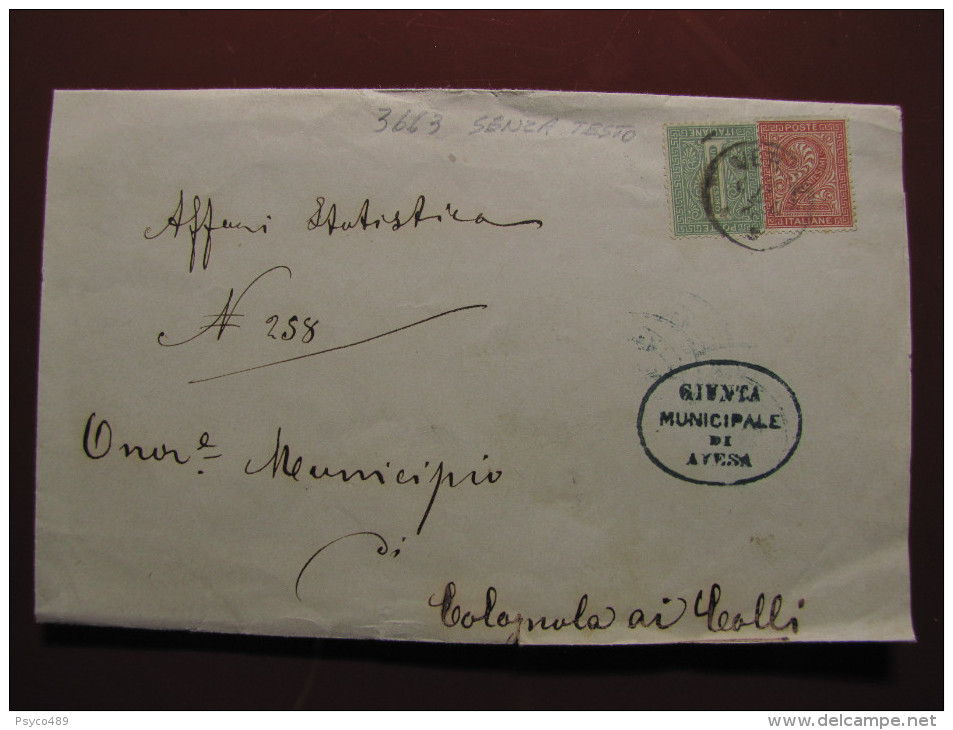 3663 SENZA TESTO
ITALIANE
POSTE
POSTE
ITALIANE
VER
Affari Statistica
N 258
GIUNTA
MUNICIPALE
DI
AVESA
Onor.e Municipio
di
Colognola ai Colli
Psyco489
www.delcampe.net